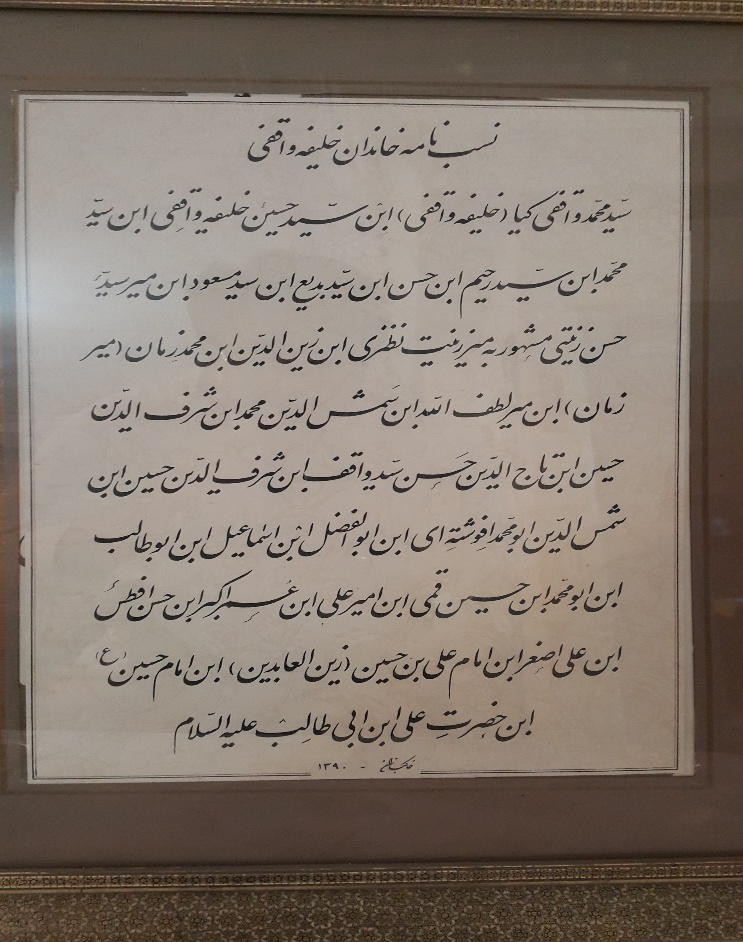 نسب نامه خاندان خلیفه واقفی
سیّد محمّد واقفی کیا (خلیفه واقفی) ابن سیّد حسین خلیفه واقفی ابن سیّد
محمّد ابن سیّد رحیم ابن حسن ابن سیّد بدیع ابن سید مسعود ابن میر سیّد
حسن زینتی مشهور به میر زینت نطنزی ابن زین الدّین ابن محمد زمان (میر
زمان) ابن میر لطف الله ابن شمس الدّین محمد ابن شرف الدّین
حسین ابن تاج الدّین حسن سیّد واقف ابن شرف الدّین حسین ابن
شمس الدّین ابو محمّد افوشته ای ابن ابوالفضل ابن اسماعیل ابن ابوطالب
ابن ابو محمّد ابن حسین قمی ابن امیر علی ابن عُمر اکبر ابن حسن افطس
ابن علی اصغر ابن امام علی بن حسین (زین العابدین) ابن امام حسین (ع)
ابن حضرتِ علی ابن ابی طالب علیه السّلام
۱۳۹۰